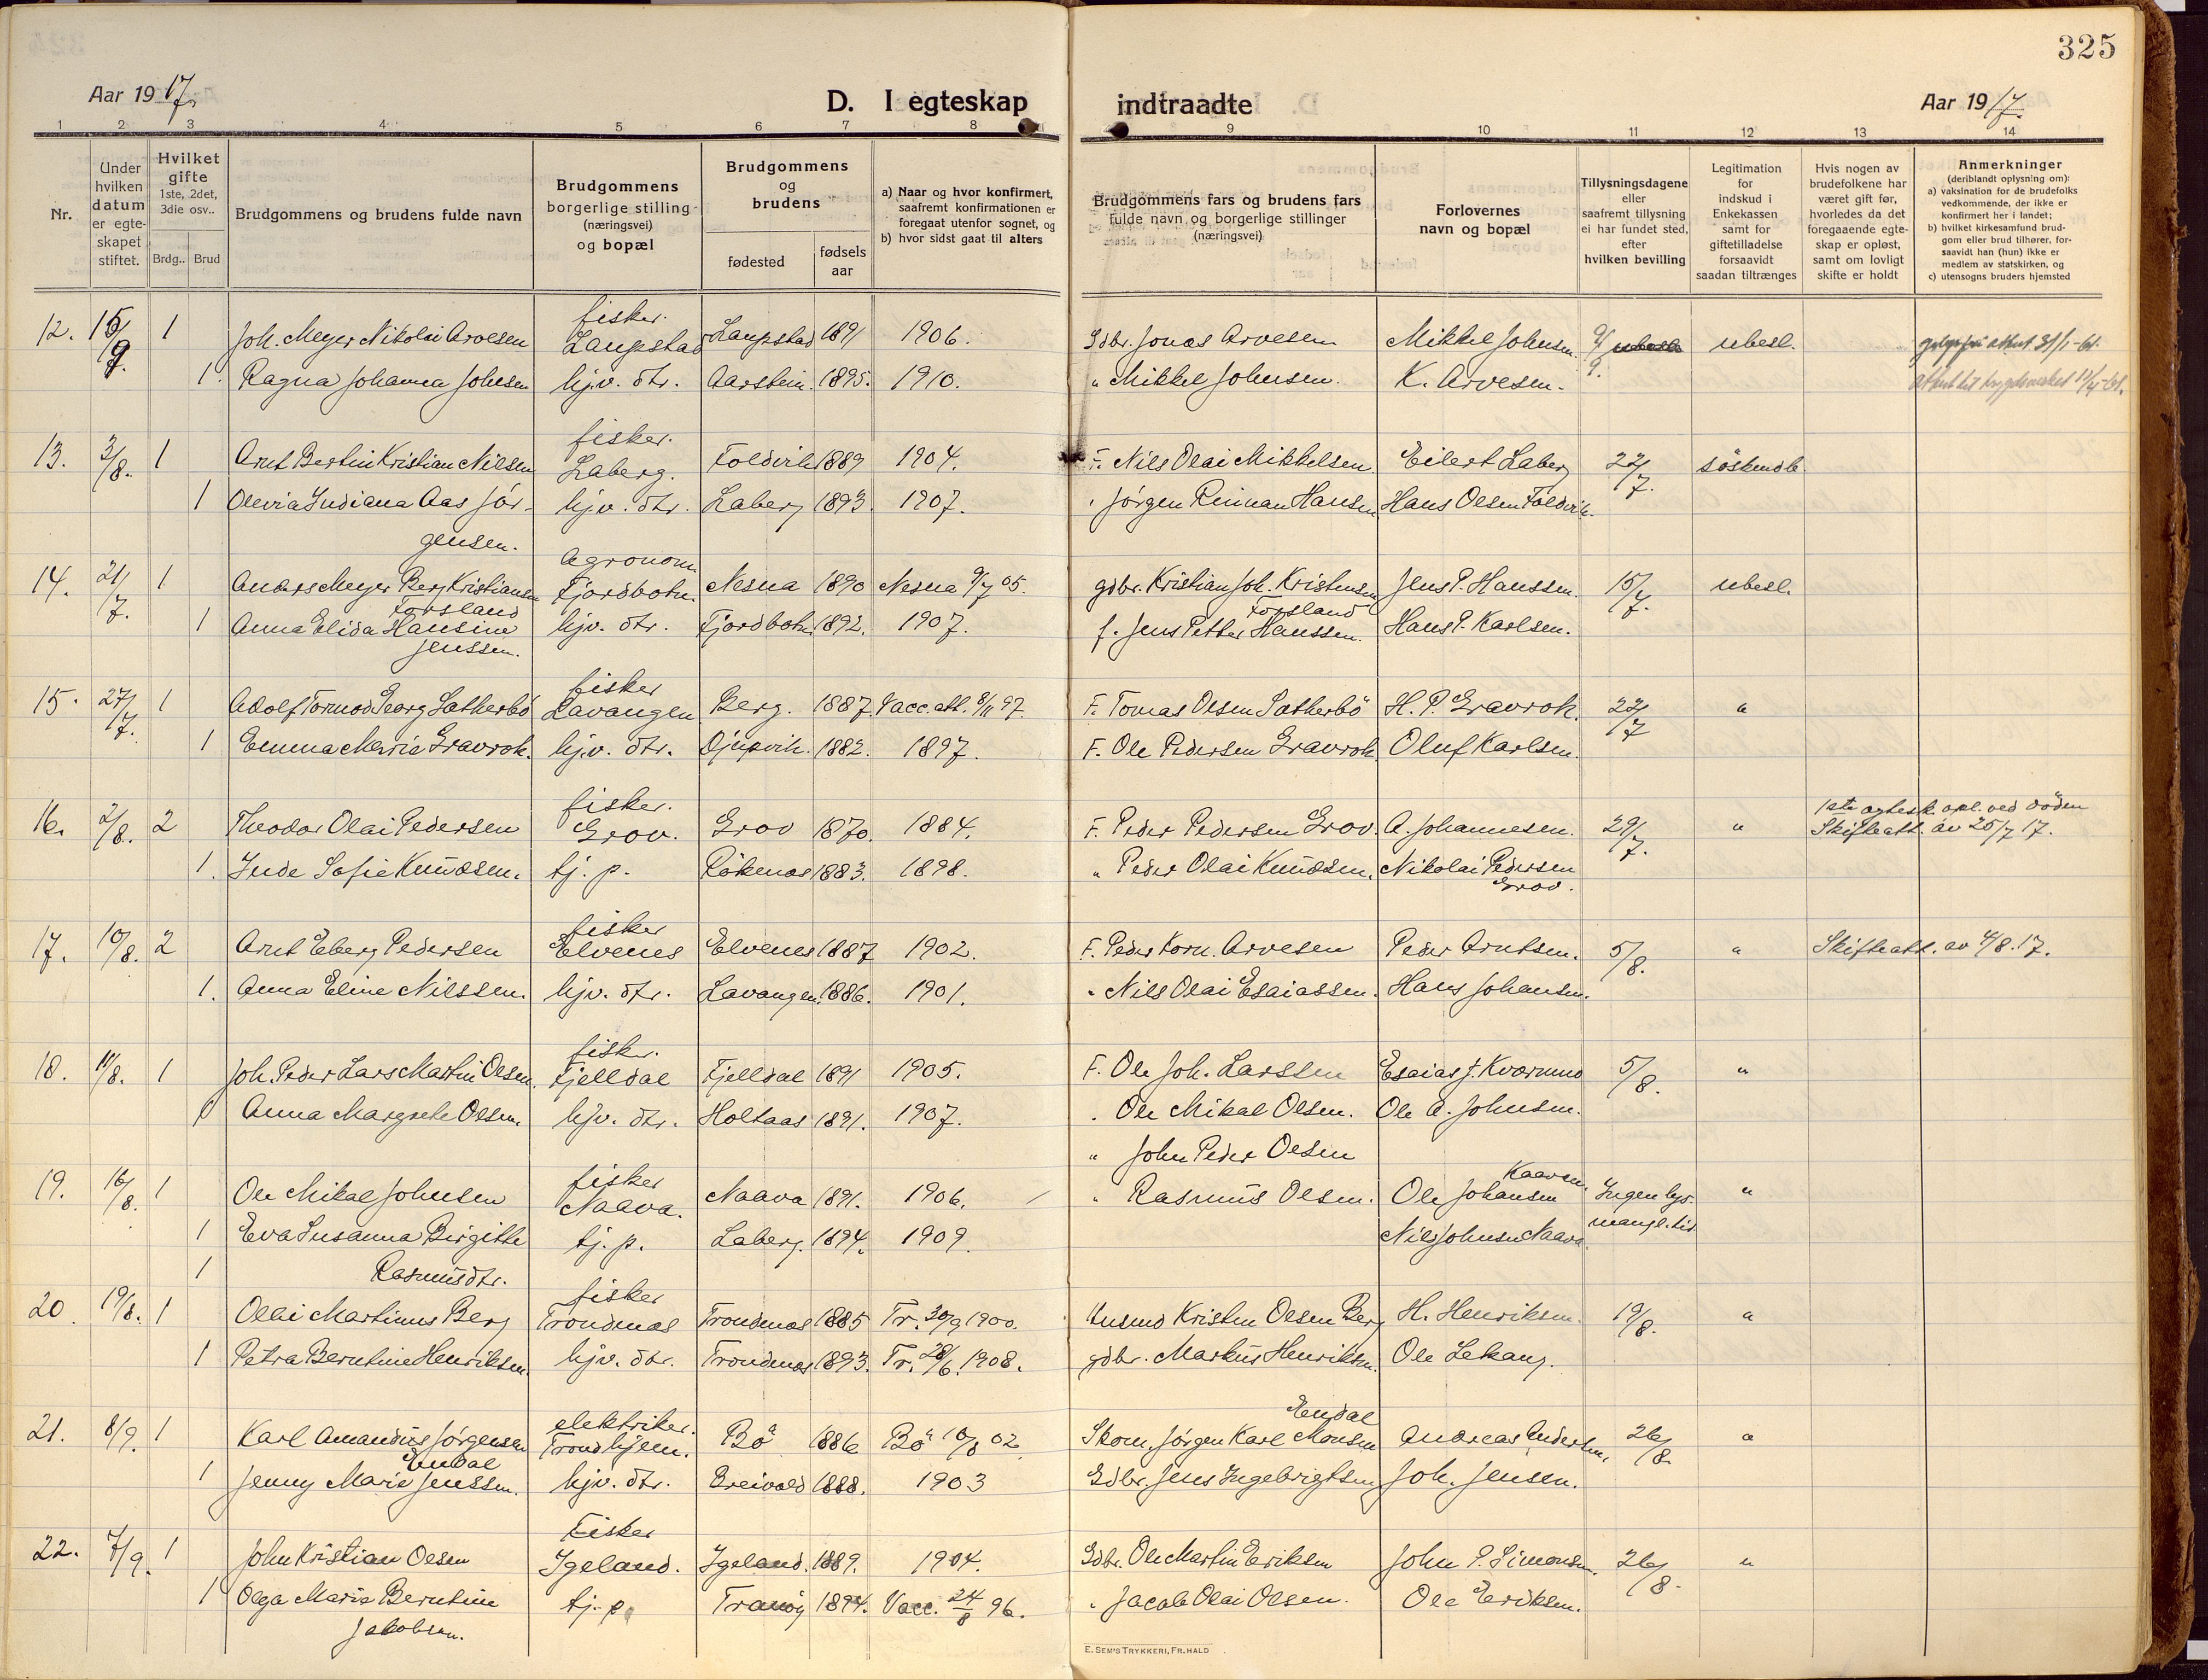 325
Aar 1917.
D. I egteskap
indtraadte
Aar 1917.
1 2 3 4 5 6 7 8 9 10 11 12 13 14
Nr.
Under hvilken datum er egteskapet stiftet.
Hvilket gifte 1ste, 2det, 3die osv..
Brdg.. Brud
Brudgommens og brudens fulde navn
Brudgommens borgerlige stilling (næringsvei) og bopæl
Brudgommens og brudens
fødested
fødsels aar
a) Naar og hvor konfirmert, saafremt konfirmationen er foregaat utenfor sognet, og
b) hvor sidst gaat til alters
Brudgommens fars og brudens fars fulde navn og borgerlige stillinger (næringsvei)
Forlovernes navn og bopæl
Tillysningsdagene eller saafremt tillysning ei har fundet sted, efter hvilken bevilling
Legitimation for indskud i Enkekassen samt for giftetilladelse forsaavidt saadan tiltrænges
Hvis nogen av brudefolkene har været gift før, hvorledes da det foregaaende egteskap er opløst, samt om lovligt skifte er holdt
Anmerkninger (deriblandt oplysning om):
a) vaksination for de brudefolks vedkommende, der ikke er konfirmert her i landet;
b) hvilket kirkesamfund brudgom eller brud tilhører, forsaavidt han (hun) ikke er medlem av statskirken, og
c) utensogns bruders hjemsted
12. 15/9. 1 Joh. Meyer Nikolai Arvesen fisker. Laupstad Laupstad 1891 1906. Gdbr. Jonas Arvesen Mikkel Johnsen. 9/9. ubesl.
1. Ragna Johanna Johnsen hj.v. dtr. Aarstein. 1895. 1910. " Mikkel Johnsen. K. Arvesen.
13. 3/8. 1 Arnt Bertin Kristian Nilsen fisker. Laberg. Foldvik 1889 1904. F. Nils Olai Mikkelsen. Eilert Laberg 22/7. söskendb.
1 Olevia Indiana Aas Jörgensen. hj.v. dtr. Laberg 1893. 1907. " Jörgen Reinan Hansen Hans Olsen Foldvik.
14. 21/7. 1 Anders Meyer Berg Kristiansen Forsland agronom. Fjordbotn. Nesna 1890 Nesna 9/7 05. gdbr. Kristian Joh. Kristensen Forsland Jens P. Hanssen. 15/7. ubesl.
1 Anna Elida Hansine Jenssen. hjv. dtr. Fjordbotn. 1892. 1907. f. Jens Petter Hanssen. Hans P. Karlsen.
15. 27/7. 1 Adolf Tormod Georg Sætherbö fisker Lavangen Berg. 1887. Vacc. att. 8/11 97. F. Tomas Olsen Sætherbö H. P. Gravrok. 22/7 "
1 Emma Marie Gravrok. hj.v. dtr. Djupvik. 1882. 1897. F. Ole Pedersen Gravrok Oluf Karlsen.
16. 2/8. 2 Theodor Olai Pedersen fisker. Grov. Grov 1870. 1884. F. Peder Pedersen Grov. A. Johannesen. 29/7. " 1ste egtesk. opl. ved döden Skifteatt. av 25/7 17.
1. Inde Sofie Knudsen. tj. p. Rökenes 1883. 1898. " Peder Olai Knudsen. Nikolai Pedersen Grov.
17. 10/8. 2 Arnt Eberg Pedersen fisker Elvenes Elvenes 1887 1902. F. Peder Korn. Arvesen Peder Arntsen. 5/8. " Skifteatt. av 4/8. 17.
1. Anna Eline Nilssen. hjv. dtr. Lavangen. 1886. 1901. " Nils Olai Esaiassen. Hans Johansen.
18. 11/8. 1 Joh. Peder Lars Martin Olsen. fisker. Fjelldal Fjelldal 1891 1905. F. Ole Joh. Larssen Esaias J. Kvernmo 5/8. "
1 Anna Margrete Olsen. hjv. dtr. Holtaas 1891. 1907. " Ole Mikal Olsen. Ole A. Johnsen.
" John Peder Olsen
19. 16/8. 1 Ole Mikal Johnsen fisker Naava. Naava 1891. 1906. " Rasmus Olsen. Ole Johansen Kaaven. Ingen lys. mangl. tid "
1 Eva Susanna Birgitte tj. p. Laberg. 1894. 1909. Nils Johnsen Naava.
1 Rasmusdtr.
20. 19/8. 1 Olai Martinus Berg fisker Trondenes Trondenes 1885 Tr. 30/9 1900. husmd Kristen Olsen Berg H. Henriksen. 19/8. "
1 Petra Berntine Henriksen. hjv. dtr. Trondenes 1893. Tr. 28/6. 1908. gdbr. Markus Henriksen. Ole Lekang.
21. 8/9. 1 Karl Amandus Jörgensen Endal elektriker. Trondhjem. Bö 1886 Bö 10/8 02. Skom. Jörgen Karl Monsen Endal Andreas Andersen. 26/8. "
1 Jenny Marie Jenssen. hjv. dtr. Breivold 1888. 1903 Gdbr. Jens Ingebrigtsen Joh. Jensen.
22. 7/9. 1 John Kristian Olsen Fisker Igeland. Igeland. 1889. 1904. Gdbr. Ole Martin Eriksen John P. Simonsen. 26/8. "
1 Olga Marie Berntine Jakobsen. tj. p. Tranöy 1894. Vacc. 24/8 96. " Jacob Olai Olsen. Ole Eriksen.
E. SEM'S TRYKKERI, FR.HALD